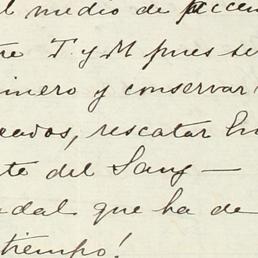 el medio de
re T. y M pues se
inero y conservar
eados, rescatar
te del Sang —
udal que ha de
tiempo!